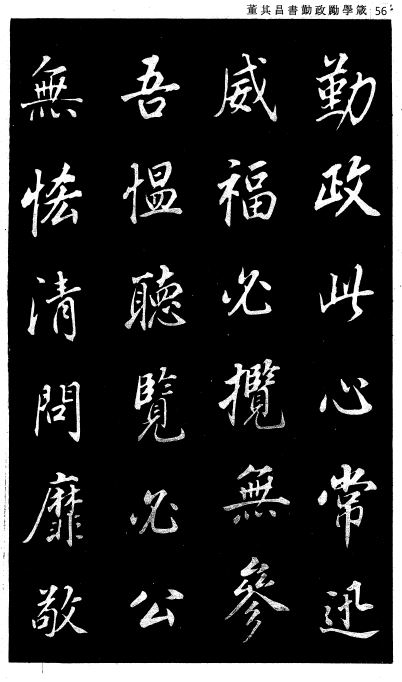 董其昌書勤政勵學箴 56
勤政此心常迅
威福必攬無參
吾愠聽覽必公
無恡清問靡敢